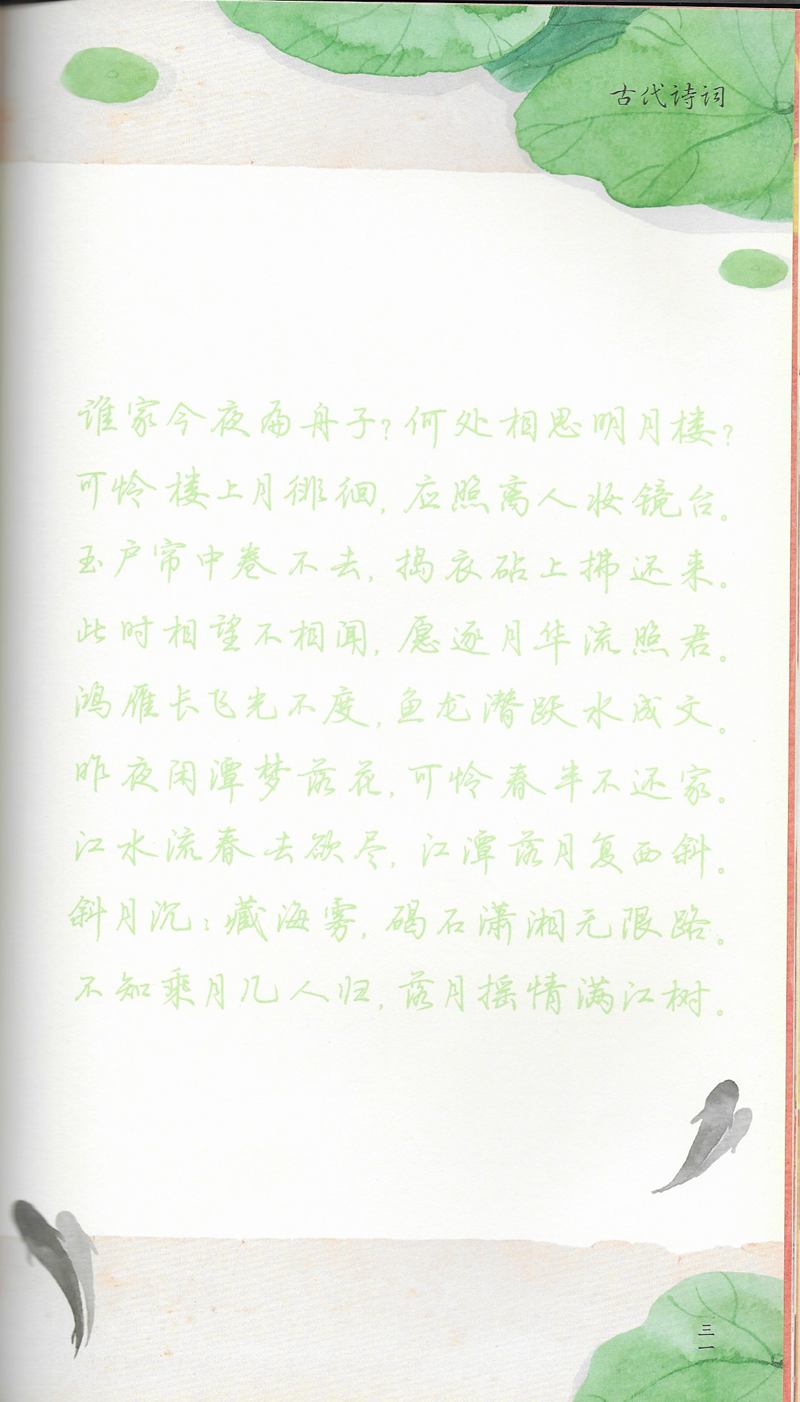 古代诗词
谁家今夜扁舟子?何处相思明月楼?
可怜楼上月徘徊,应照离人妆镜台。
玉户帘中卷不去,捣衣砧上拂还来。
此时相望不相闻,愿逐月华流照君。
鸿雁长飞光不度,鱼龙潜跃水成文。
昨夜闲潭梦落花,可怜春半不还家。
江水流春去欲尽,江潭落月复西斜。
斜月沉沉藏海雾,碣石潇湘无限路。
不知乘月几人归,落月摇情满江树。
三一